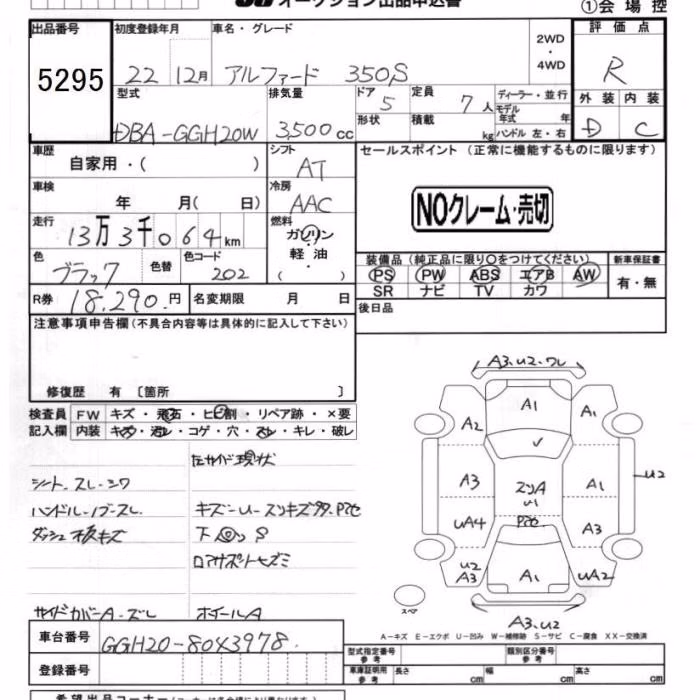 オークション出品申込書
①会場控
出品番号
5295
初度登録年月
22 12月
車名・グレード
アルファード 350S
2WD
・
4WD
評価点
R
外装 内装
D C
型式
DBA-GGH20W
排気量
3,500 cc
ドア
5
定員
7 人
ディーラー・並行
モデル
年式 年
形状
積載
kg
ハンドル 左・右
車歴
自家用・( )
シフト
AT
セールスポイント (正常に機能するものに限ります)
NOクレーム・売切
車検
年 月( 日)
冷房
AAC
走行
13万3千064km
燃料
ガソリン
・
軽油
( )
色
ブラック
色替
色コード
202
装備品 (純正品に限り○をつけてください)
PS PW ABS エアB AW
SR ナビ TV カワ
新車保証書
有・無
R券
18,290.円
名変期限 月 日
後日品
注意事項申告欄(不具合内容等は具体的に記入して下さい)
修復歴 有 〔箇所 〕
検査員
記入欄
FW キズ・飛石・ヒビ割・リペア跡・×要
内装 キズ・汚レ・コゲ・穴・スレ・キレ・破レ
左サイド現状
シート スレ・シワ
ハンドル・ノブスレ
ダッシュ板キズ
サイドカバーA・ズレ
ホイールA
車台番号
GGH20-80X3978
登録番号
型式指定番号
参考
類別区分番号
参考
車庫証明用
参考
長さ cm
幅 cm
高さ cm
A3.U2.ワレ
A1
A2
A1
A3
A1
UA4
A3
U2
A3
A1
UA2
U2
A3.U2
スペア
A-キズ E-エクボ U-凹み W-補修跡 S-サビ C-腐食 XX-交換済